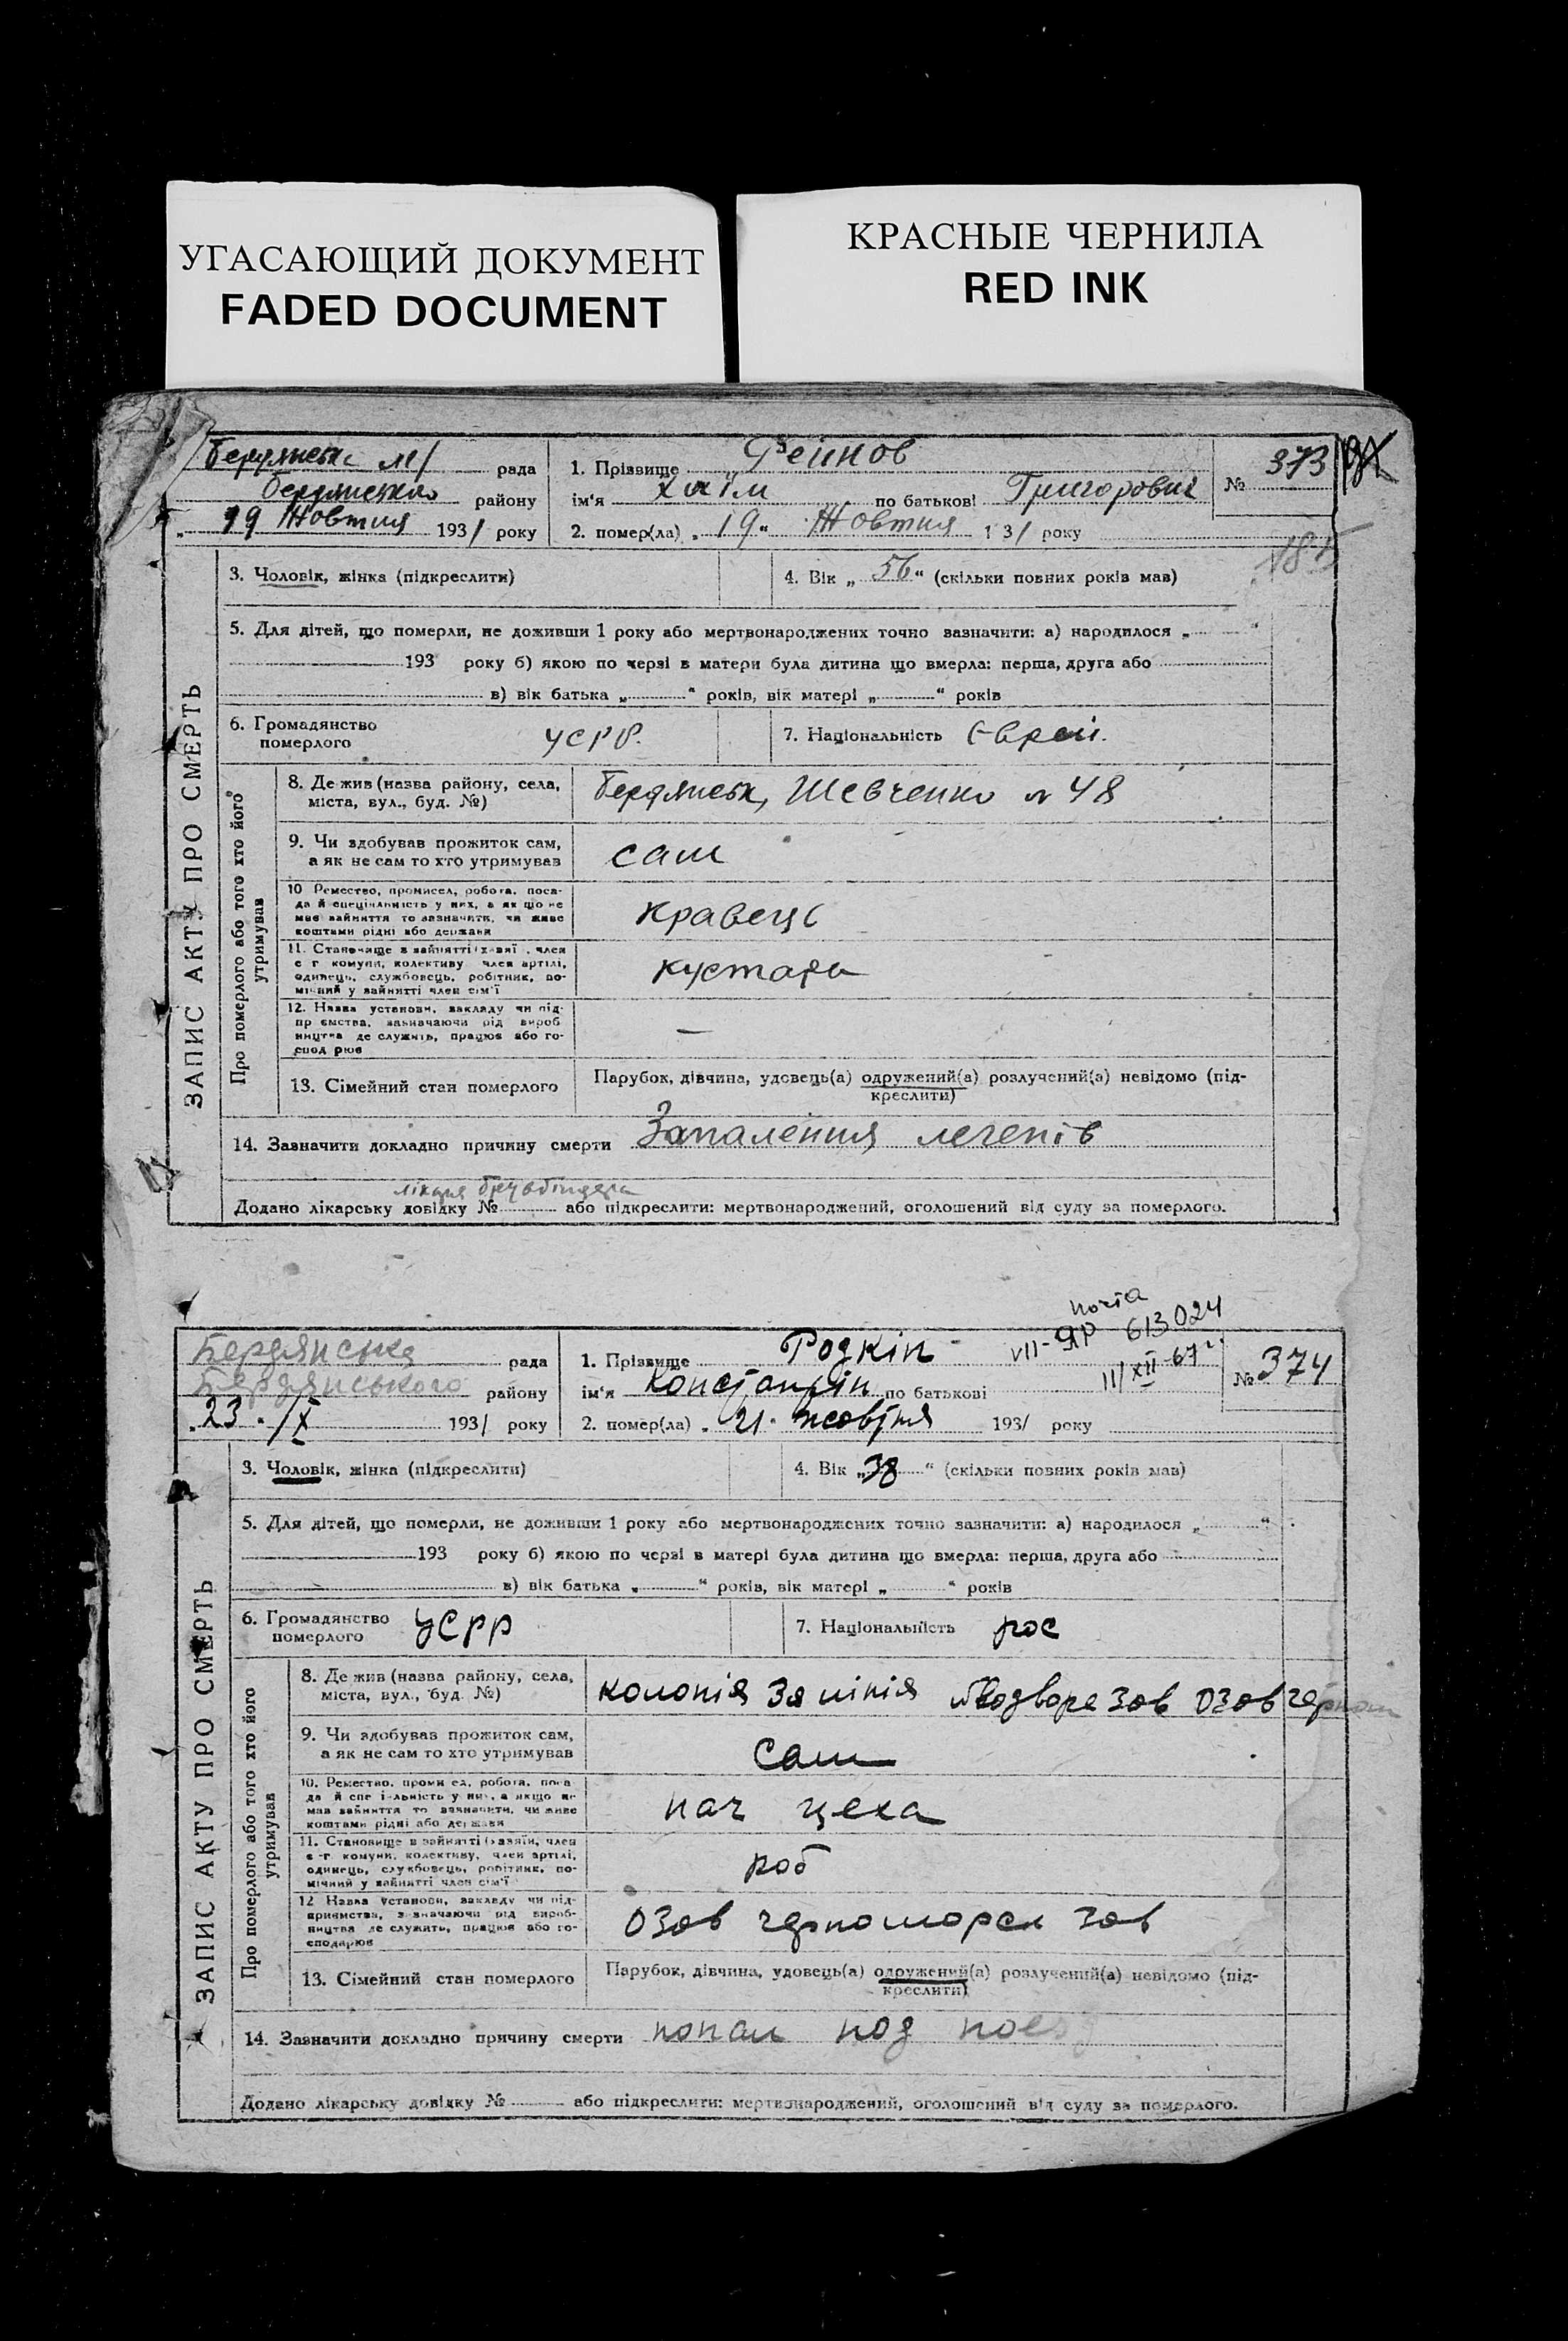 УГАСАЮЩИЙ ДОКУМЕНТ
FADED DOCUMENT
КРАСНЫЕ ЧЕРНИЛА
RED INK
Бердянська м/ рада
Бердянського району
„ 19 Жовтня 1931 року
1. Прізвище Фейнов
ім'я Хаїм по батькові Григорович
2. помер(ла) „ 19 “ Жовтня 1 31 року
№ 373
185
ЗАПИС АКТУ ПРО СМЕРТЬ
3. Чоловік, жінка (підкреслити)
4. Вік „ 56 “ (скільки повних років мав)
5. Для дітей, що померли, не доживши 1 року або мертвонароджених точно зазначити: а) народилося „ “
193 року б) якою по черзі в матери була дитина що вмерла: перша, друга або
в) вік батька „ “ років, вік матері „ “ років
6. Громадянство
померлого
УСРР.
7. Національність Єврей.
Про померлого або того хто його
утримував
8. Де жив (назва району, села,
міста, вул., буд. №)
Бердянськ, Шевченко № 48
9. Чи здобував прожиток сам,
а як не сам то хто утримував
сам
10 Ремество, промисел, робота, поса-
да й спеціяльність у них, а як що не
має зайняття то зазначити, чи живе
коштами рідні або держави
кравець
11. Становище в зайнятті (хазяї , член
с г комуни, колективу член артілі,
одинець, службовець, робітник, по-
мічний у зайнятті член сім'ї
кустарь
12. Назва установи, закладу чи під-
пр ємства, зазначаючи рід вироб
ництва де служить, працює або го-
спод рює
—
13. Сімейний стан померлого
Парубок, дівчина, удовець(а) одружений(а) розлучений(а) невідомо (під-
креслити)
14. Зазначити докладно причину смерти Запалення легенів
лікаря
Додано лікарську довідку № або підкреслити: мертвонароджений, оголошений від суду за померлого.
почта
VII-ЯР 613024
11/XII-67г.
Бердянська рада
Бердянського району
„ 23 “ /X 1931 року
1. Прізвище Родкін
ім'я Константін по батькові
2. помер(ла) „ 21 “ жовтня 1931 року
№ 374
ЗАПИС АКТУ ПРО СМЕРТЬ
3. Чоловік, жінка (підкреслити)
4. Вік „ 38 “ (скільки повних років мав)
5. Для дітей, що померли, не доживши 1 року або мертвонароджених точно зазначити: а) народилося „ “
193 року б) якою по черзі в матері була дитина що вмерла: перша, друга або
в) вік батька „ “ років, вік матері „ “ років
6. Громадянство
померлого
УСРР
7. Національність рос
Про померлого або того хто його
утримував
8. Де жив (назва району, села,
міста, вул., буд. №)
колонія За лінія дворе Зов Озов черном
9. Чи здобував прожиток сам,
а як не сам то хто утримував
сам
10. Ремество, проми ел, робота, поса
да й спе і-льність у них, а якщо не
мав зайняття то зазначити, чи живе
коштами рідні або держави
нач цеха
11. Становище в зайнятті (хазяїн, член
с -г. комуни, колективу, член артілі,
одинець, службовець, робітник, по-
мічний у зайнятті член сім'ї
роб
12 Назва установи, закладу чи під-
приємства, зазначаючи рід вироб-
ництва де служить, працює або го-
сподарює
Озов черноморск зав
13. Сімейний стан померлого
Парубок, дівчина, удовець(а) одружений(а) розлучений(а) невідомо (під-
креслити)
14. Зазначити докладно причину смерти попал под поезд
Додано лікарську довідку № або підкреслити: мертвонароджений, оголошений від суду за померлого.